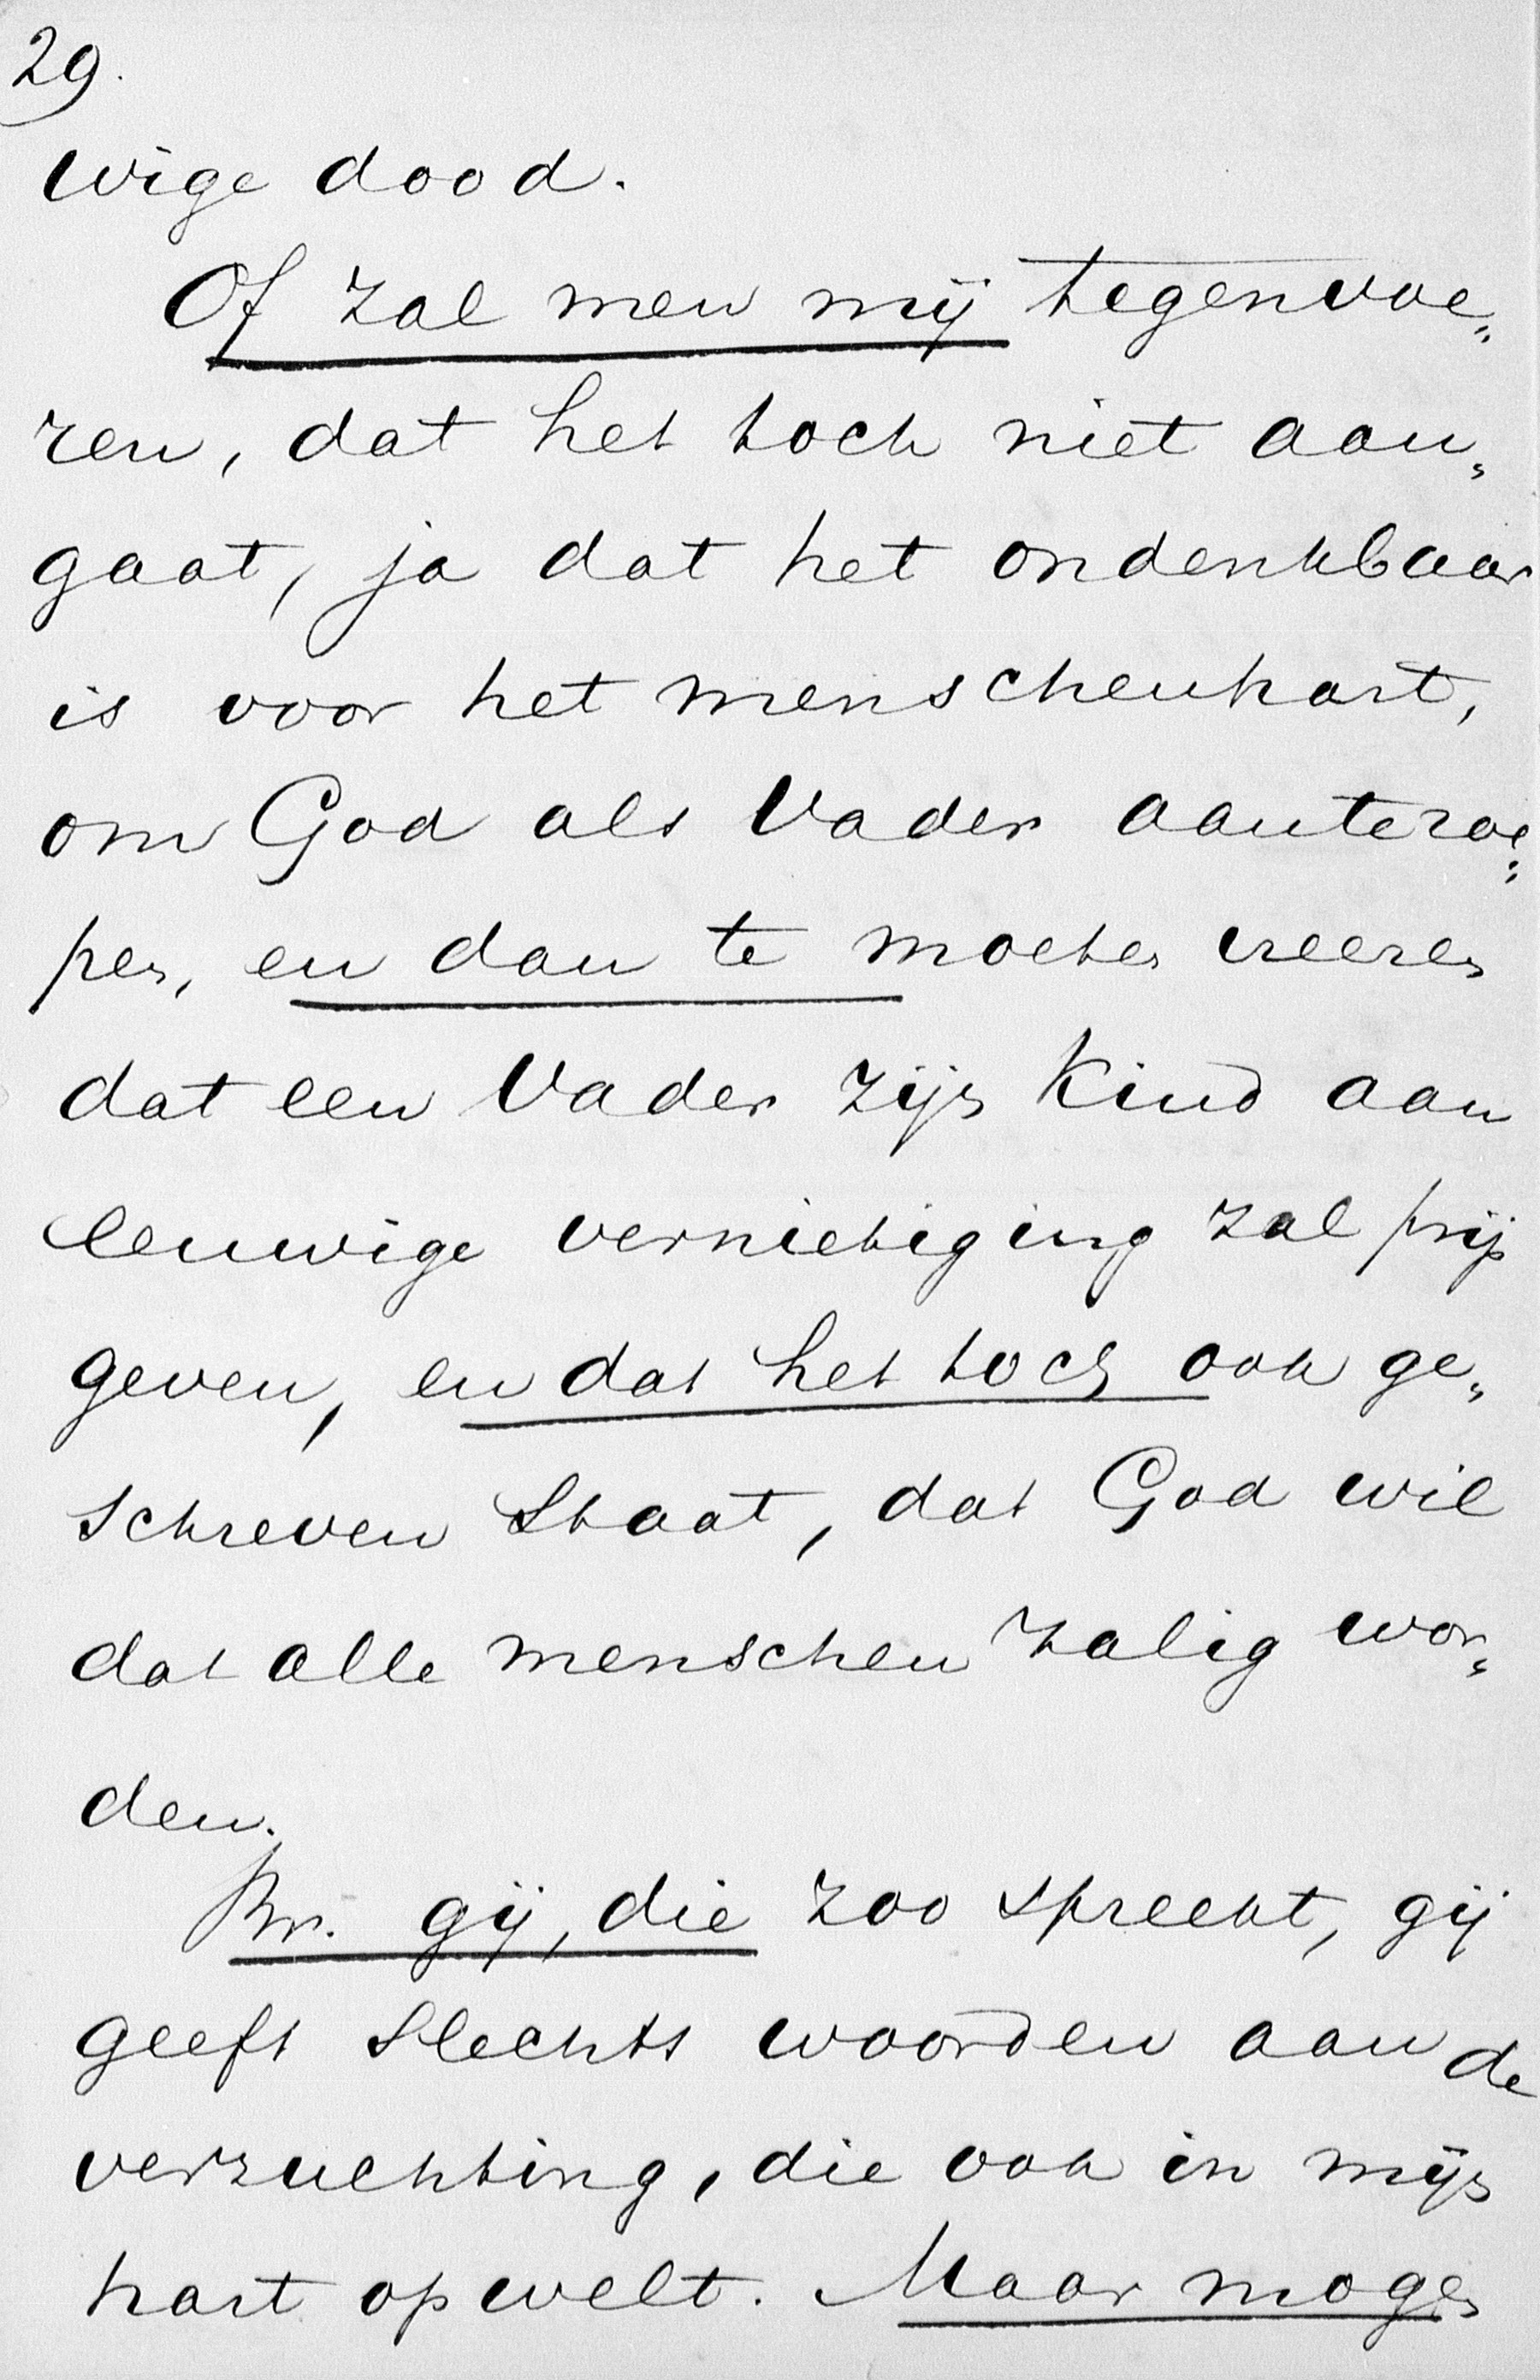 29.
wige dood.
Of zal men mij tegenvoe„
ren, dat het toch niet aan„
gaat, ja dat het ondenkbaar
is voor het menschenhart,
om God als Vader aanteroe„
pen, en dan te moeten leeren
dat een Vader zijn Kind aan
eeuwige vernietiging zal prijs
geven, en dat het toch ook ge„
schreven staat, dat God wil
dat alle menschen zalig wor„
den.
Br. gij, die zoo spreekt, gij
geeft slechts woorden aan de
verzuchting, die ook in mijn
hart opwelt. Maar mogen